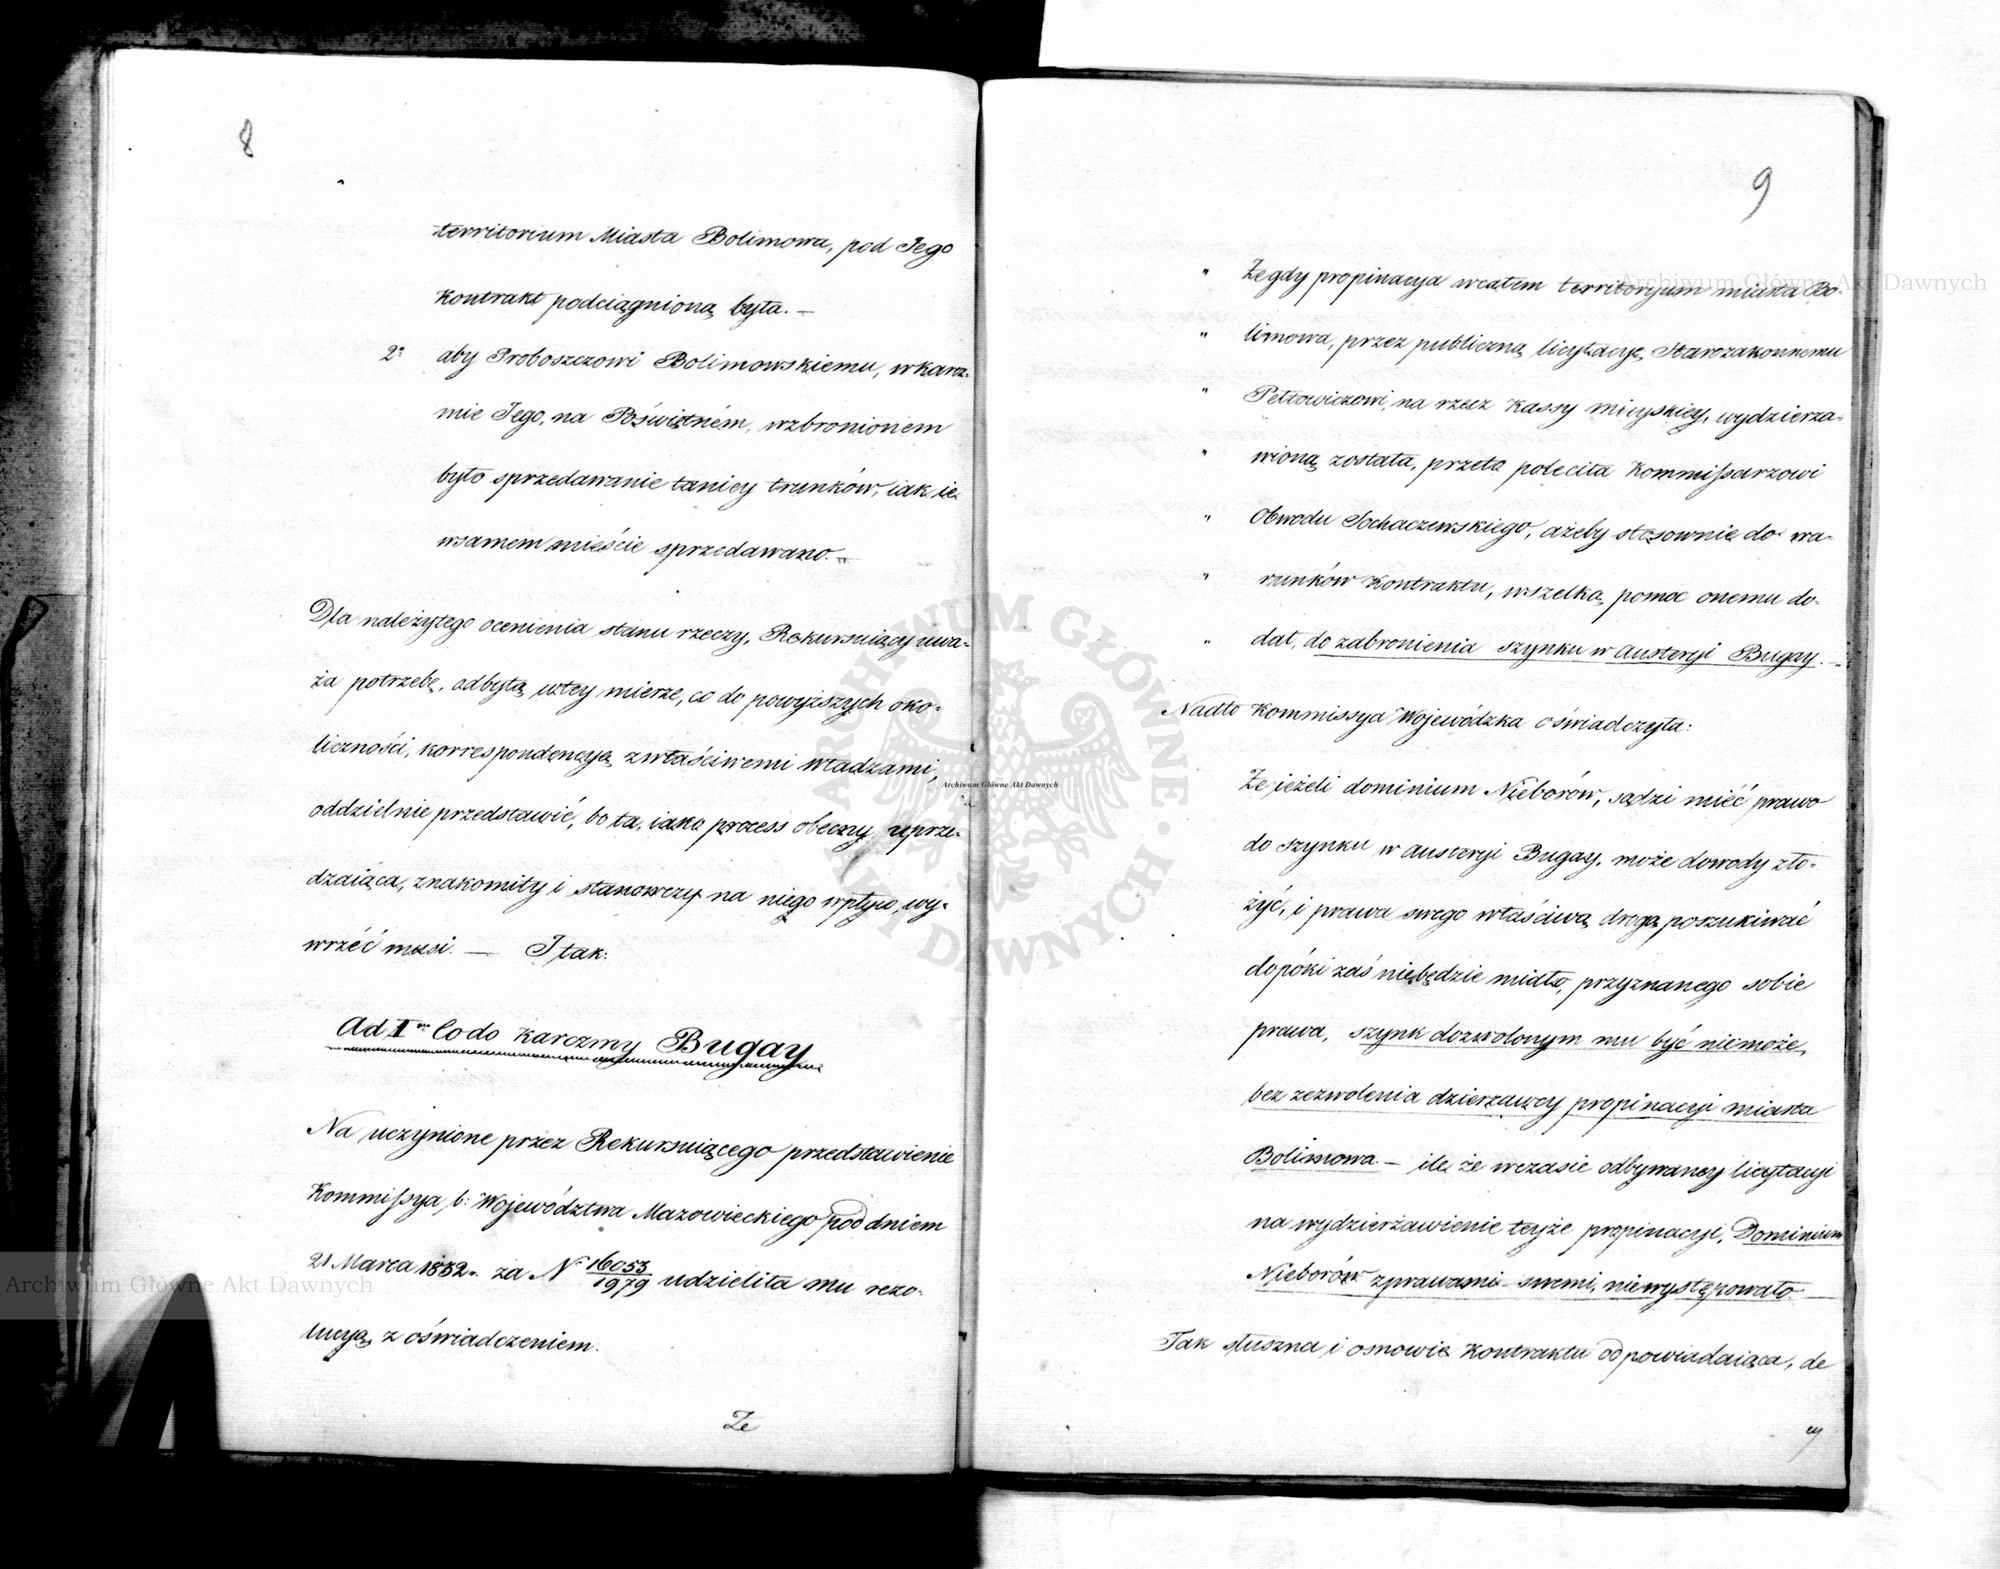 8
territorium Miasta Bolimowa, pod Jego
Kontrakt podciągnioną była. —
2° aby Proboszczowi Bolimowskiemu, w karcz-
mie Jego, na Poświętném, wzbronionem
było sprzedawanie taniey trunków, iak ie
w samem mieście sprzedawano. „—
Dla należytego ocenienia stanu rzeczy, Rekursuiący uwa-
ża potrzebę, odbytą w tey mierze, co do powyższych oko-
liczności, korrespondencyą z właściwemi władzami,
oddzielnie przedstawić, bo ta, iako process obecny uprze-
dzaiąca, znakomity i stanowczy na niego wpływ, wy-
wrzéć musi. — I tak:
Ad I um Co do Karczmy Bugay
Na uczynione przez Rekursuiącego przedstawienie
Kommissya b: Województwa Mazowieckiego pod dniem
21 Marca 1832 r. za N° 16053/1979 udzieliła mu rezo-
lucyą z oświadczeniem.
Że
9
" Że gdy propinacya w całem territoryum miasta Bo-
" limowa, przez publiczną licytacyę Starozakonnemu
" Peltowiczowi, na rzecz Kassy mieyskiey, wydzierża-
" wioną została, przeto poleciła Kommissarzowi
" Obwodu Sochaczewskiego, ażeby stosownie do wa-
" runków Kontraktu, wszelką pomoc onemu do-
" dał, do zabronienia szynku w austeryi Bugay. „
Nadto Kommissya Wojewódzka oświadczyła:
Że jeżeli dominium Nieborów, sądzi miéć prawo
do szynku w austeryi Bugay, może dowody zło-
żyć, i prawa swego właściwą drogą poszukiwać
dopóki zaś niebędzie miało, przyznanego sobie
prawa, szynk dozwolonym mu być niemoże,
bez zezwolenia dzierżawcy propinacyi miasta
Bolimowa — ile że w czasie odbywaney licytacyi
na wydzierżawienie teyże propinacyi, Dominium
Nieborów z prawami swemi, niewystępowało
Tak słuszna i osnowie Kontraktu odpowiadaiąca, de
cy
Archiwum Główne Akt Dawnych
Archiwum Główne Akt Dawnych
Archiwum Główne Akt Dawnych
ARCHIWUM GŁÓWNE · AKT DAWNYCH ·